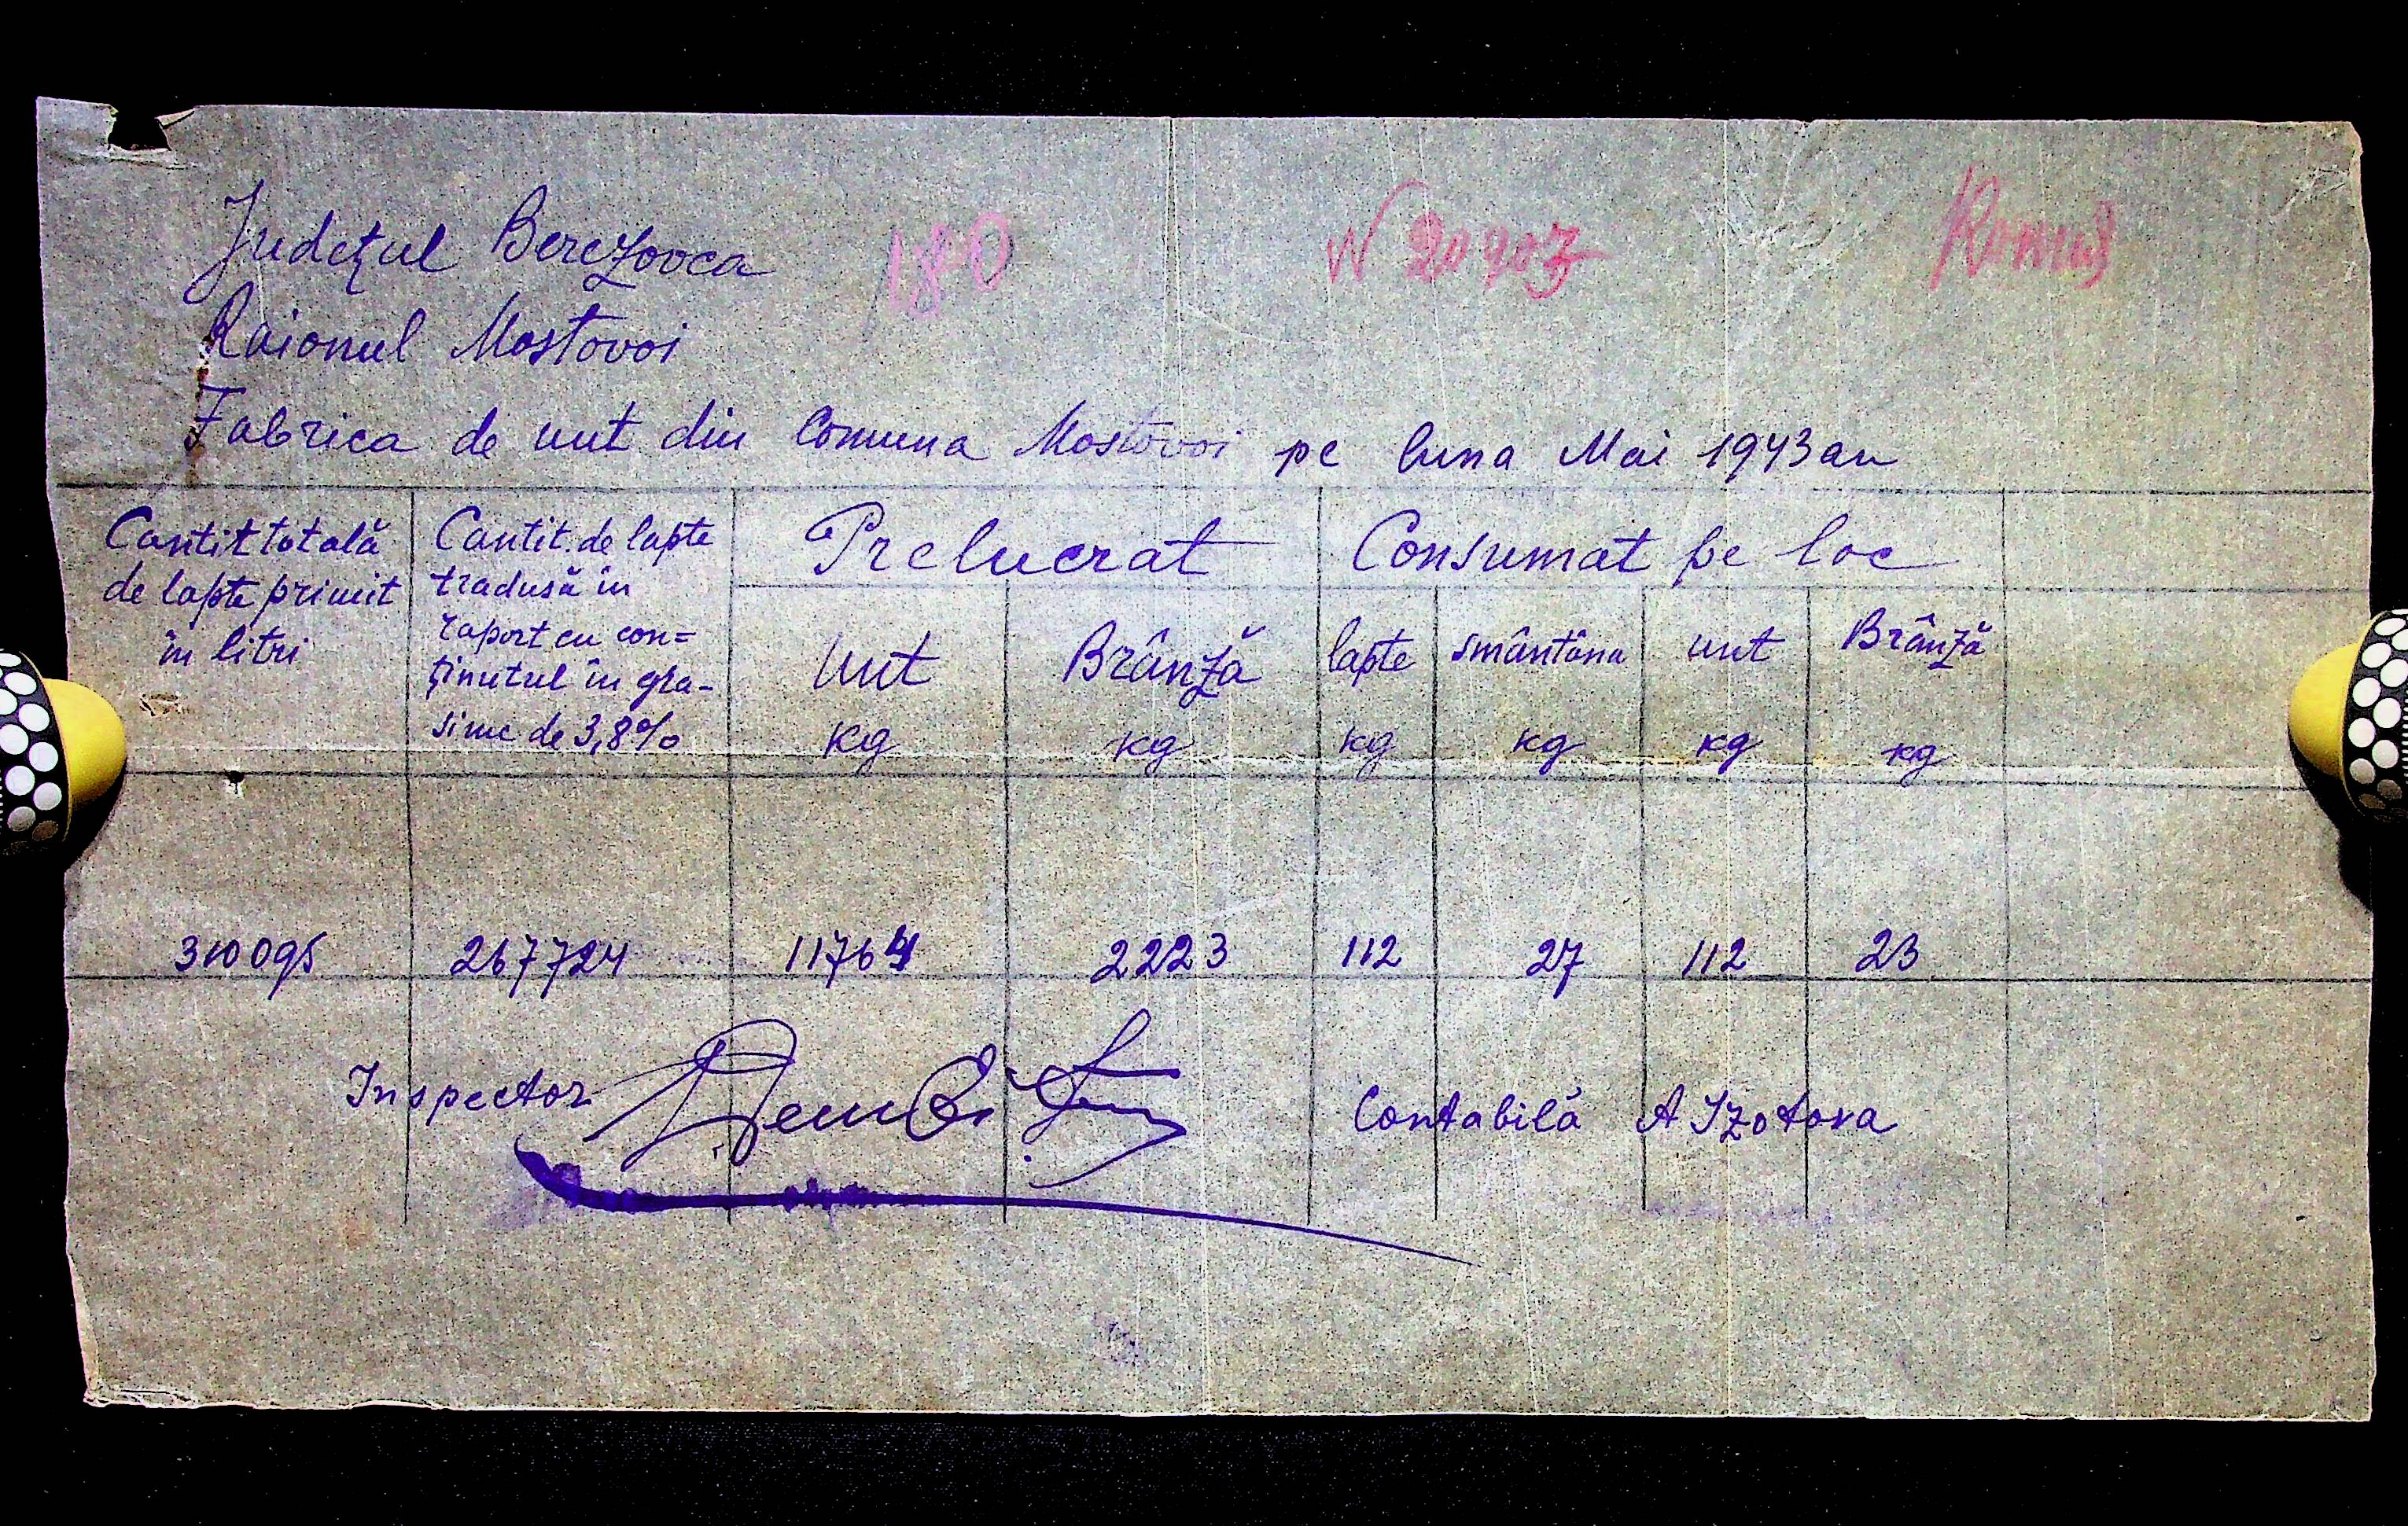 Județul Berezovca
180
N 20903
Raionul Mostovoi
Fabrica de unt din Comuna Mostovoi pe luna Mai 1943 an
Cantit totală
de lapte primit
în litri
Cantit. de lapte
tradusă în
raport cu con=
ținutul în gra-
sime de 3,8%
Prelucrat
Consumat pe loc
Unt
kg
Brânză
kg
lapte
kg
smântâna
kg
unt
kg
Brânză
kg
310095 267724 11764 2223 112 27 112 23
Inspector
Contabilă A Izotova